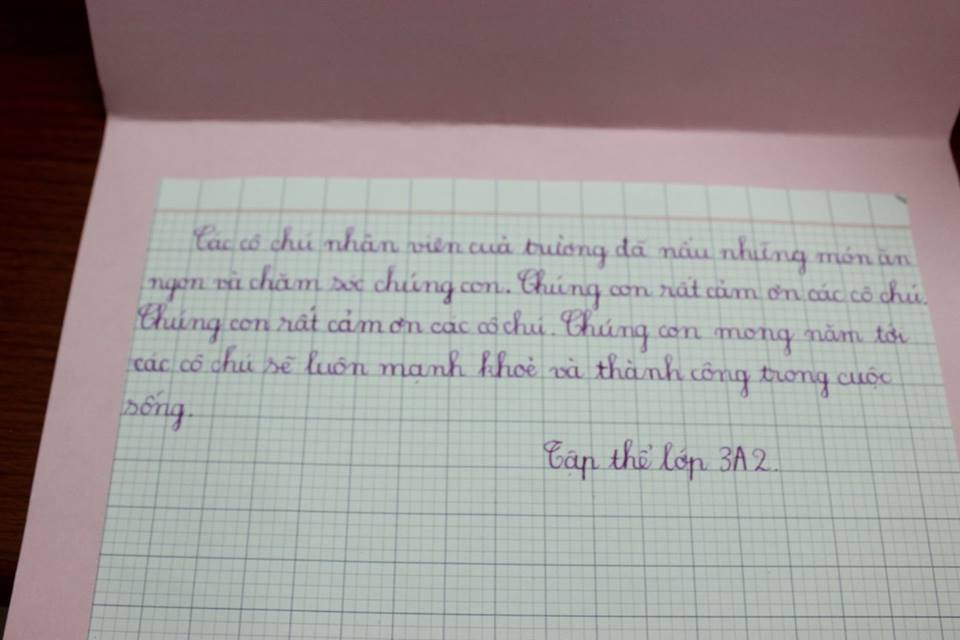 Các cô chú nhân viên cuả trường đã nấu những món ăn
ngon và chăm sóc chúng con. Chúng con rất cảm ơn các cô chú.
Chúng con rất cảm ơn các cô chú. Chúng con mong năm tới
các cô chú sẽ luôn mạnh khoẻ và thành công trong cuộc
sống.
Tập thể lớp 3A2.